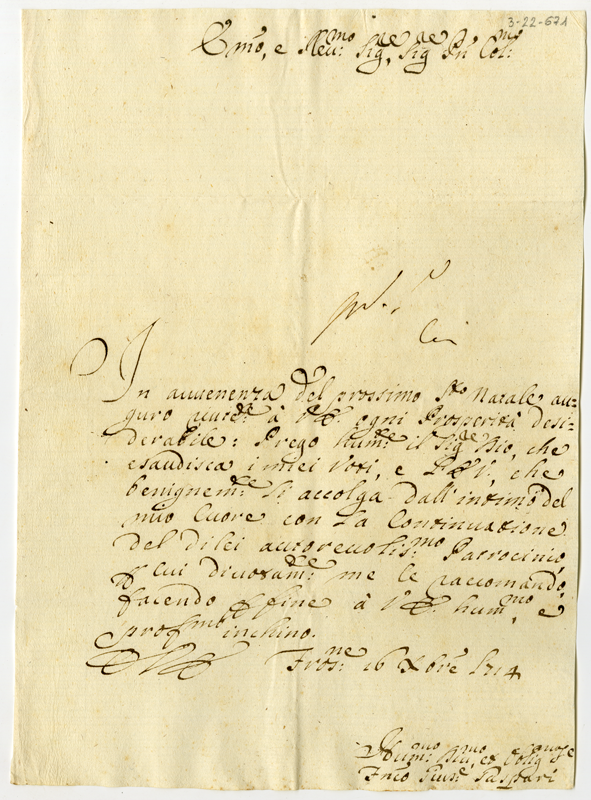 3-22-671
Emo, e Reu.mo Sig.re, Sig.re Pn Col.mo
In auuenenza del prossimo S.to Natale au=
guro à V.E. ogni Prosperità desi=
derabile: Prego hum.te il Sig.re Dio, che
esaudisca i miei Voti, e l'E.V., che
benignem.te li accolga dall'intimo del
mio Cuore con la Continuazione
del di lei autoreuoliss.mo Patrocinio,
à cui diuotam.te me le raccomando,
facendo p fine à V.E. hum.mo e
prof.mo inchino.
Fros.ne 16 Xbre 1714
Hum.mo Diu.mo et
Gaspari